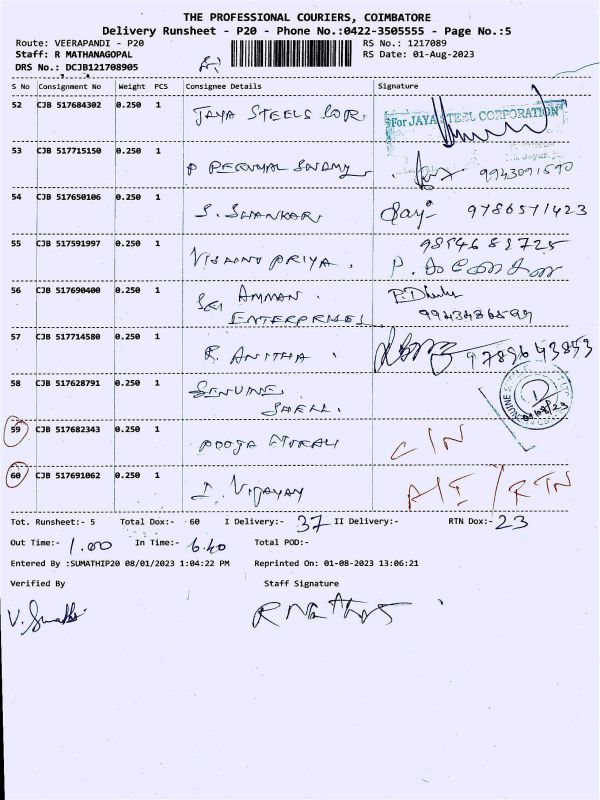 THE PROFESSIONAL COURIERS, COIMBATORE
Delivery Runsheet - P20 - Phone No.:0422-3505555 - Page No.:5
Route: VEERAPANDI - P20 RS No.: 1217089
Staff: R MATHANAGOPAL RS Date: 01-Aug-2023
DRS No.: DCJB121708905
S No Consignment No Weight PCS Consignee Details Signature
52 CJB 517684302 0.250 1 JAYA STEELS COR. For JAYA STEEL CORPORATION
53 CJB 517715150 0.250 1 P PERUMAL SWAMY
54 CJB 517650106 0.250 1 S. SHANKAR 9786571423
55 CJB 517591997 0.250 1 VISHNU PRIYA. 9894688725
56 CJB 517690400 0.250 1 SRI AMMAN
ENTERPRISES
57 CJB 517714580 0.250 1 R. ANITHA. 9789643853
58 CJB 517628791 0.250 1 GENUINE
SHELL.
59 CJB 517682343 0.250 1 POOJA C/N
60 CJB 517691062 0.250 1 I. VIJAYAN / RTN
Tot. Runsheet:- 5 Total Dox:- 60 I Delivery:- 37 II Delivery:- RTN Dox:- 23
Out Time:- 1.00 In Time:- 6.40 Total POD:-
Entered By :SUMATHIP20 08/01/2023 1:04:22 PM Reprinted On: 01-08-2023 13:06:21
Verified By Staff Signature
V. Sumathi